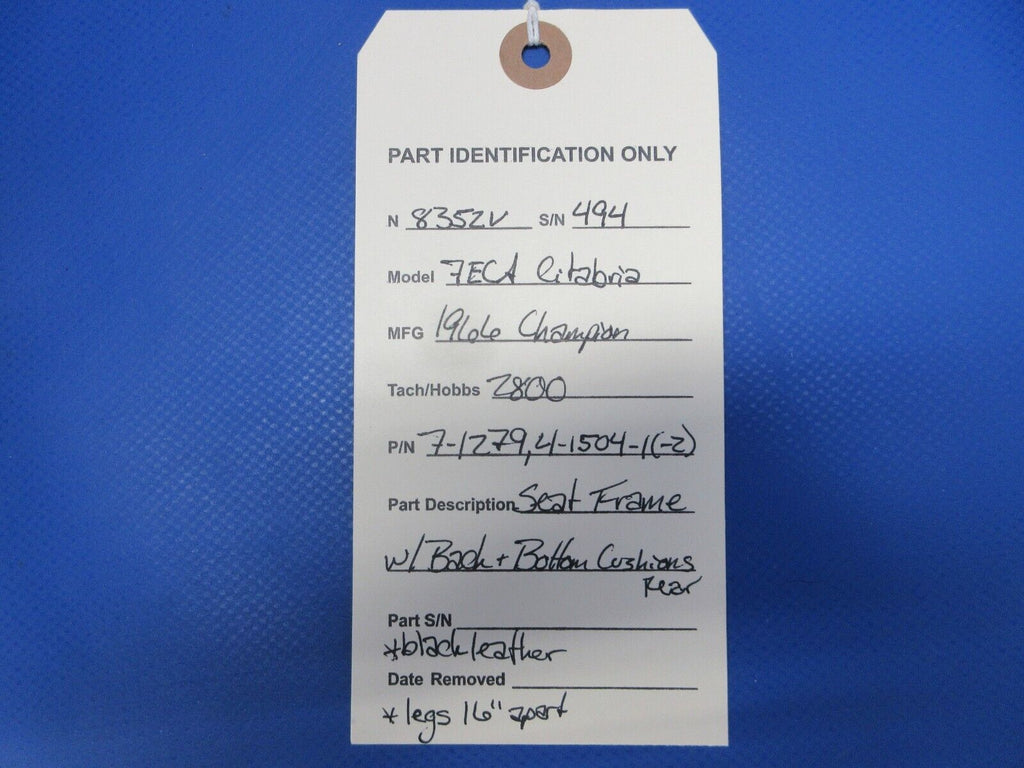 PART IDENTIFICATION ONLY
N 8352V S/N 494
Model 7ECA Citabria
MFG 1966 Champion
Tach/Hobbs 2800
P/N 7-1279,4-1504-1(-2)
Part Description Seat Frame
w/ Back + Bottom Cushions
Rear
Part S/N
*black leather
Date Removed
*legs 16" apart